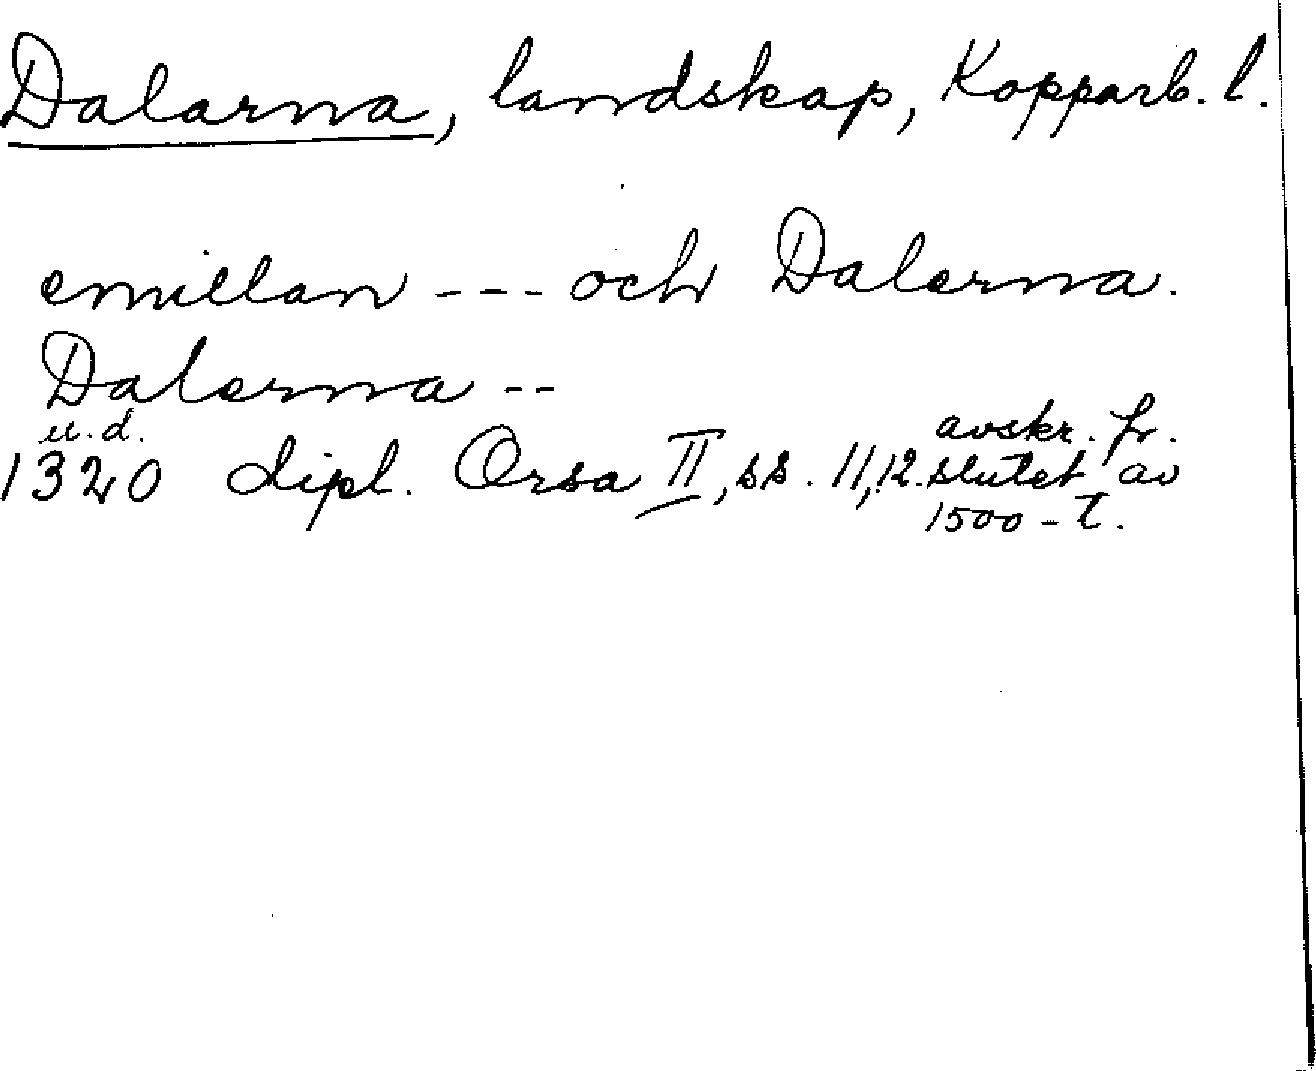 Dalarna, landskap, Kopparb. l.
emillan --- och Dalerna.
Dalerna --
u.d.
1320 dipl. Orsa II, ss. 11,12. avskr. fr.
slutet av
1500-t.